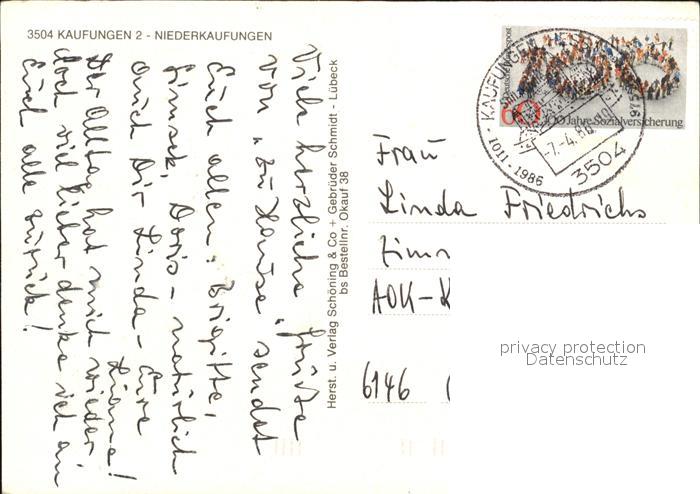 3504 KAUFUNGEN 2 - NIEDERKAUFUNGEN
Viele herzliche Grüße
von "zu Hause" sendet
Euch allen: Brigitte,
Doris - natürlich
auch Dir Linda - Eure
Diana!
Der Alltag hat mich wieder
doch viel lieber denke ich an
Euch alle zurück!
Herst. u. Verlag Schöning & Co + Gebrüder Schmidt - Lübeck
bs Bestellnr. Okauf 38
Deutsche Bundespost
60
100 Jahre Sozialversicherung
KAUFUNGEN
1011 - 1986
-7.-4.86
3504
Frau
Linda Friedrichs
Zimm
AOK-K
6146
privacy protection
Datenschutz